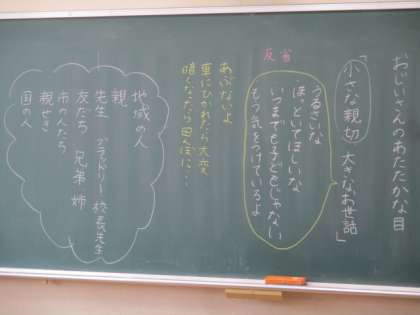 おじいさんのあたたかな目
「小さな親切、大きなお世話」
反省
うるさいな
ほっといてほしいな
いつまでも子どもじゃない
もう気をつけているよ
あぶないよ
車にひかれたら大変
暗くなったら田んぼに…
地域の人
親
先生 校長先生
友だち 兄弟 姉
市の人たち
親せき
国の人